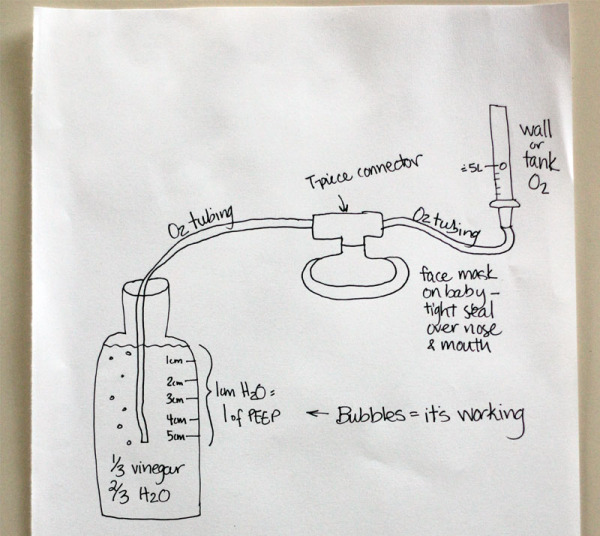 wall
or
tank
O2
≈5L
0
T-piece connector
O2 tubing
O2 tubing
face mask
on baby -
tight seal
over nose
& mouth
1cm
2cm
3cm
4cm
5cm
1cm H2O =
1 of PEEP
← Bubbles = it's working
1/3 vinegar
2/3 H2O